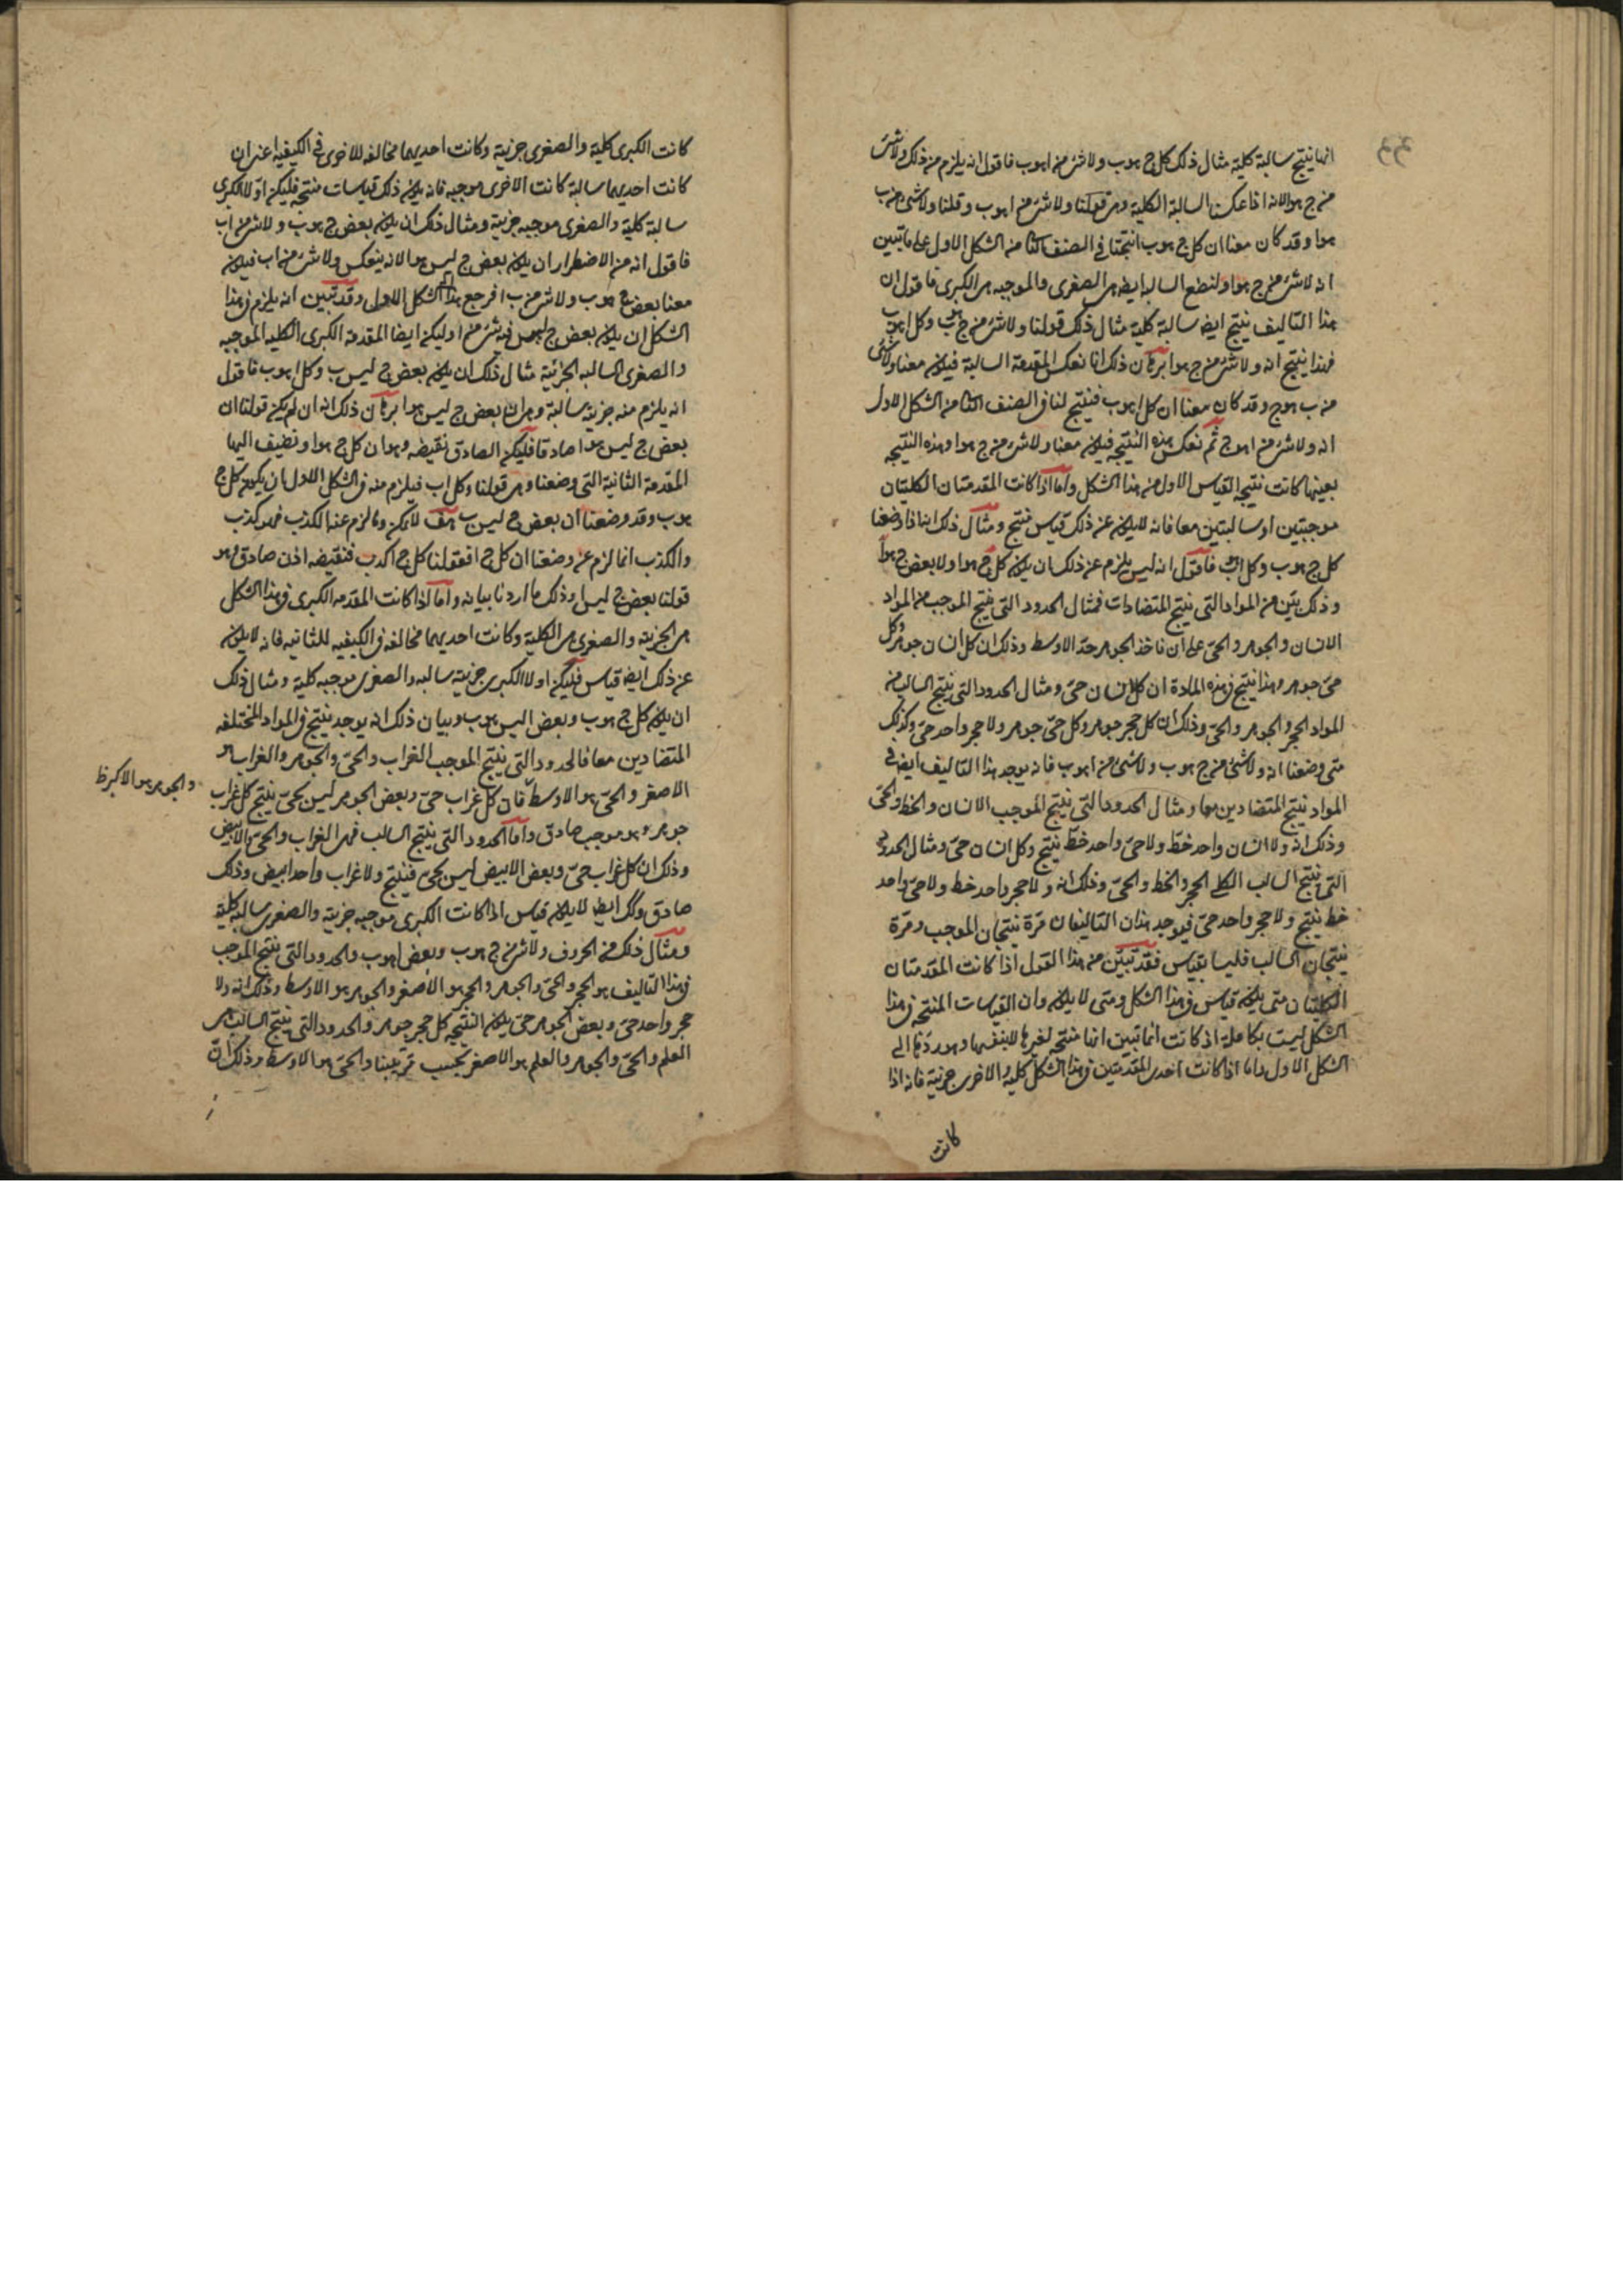 انها ينتج سالبة كلية مثال ذلك كل ج هو ب ولا شئ من ا هو ب فاقول انه يلزم من ذلك ولا شئ
من ج هو ا لانه اذا عكسنا السالبة الكلية وهى قولنا ولا شئ من ا هو ب وقلنا ولا شئ من ب
هو ا وقد كان معنا ان كل ج هو ب انتجتا فى الصنف الثا من الشكل الاول على ما تبين
انه لا شئ من ج هو ا ولنضع السالبه ايضا هى الصغرى والموجبه هى الكبرى فاقول ان
هذا التاليف ينتج ايضا سالبة كلية مثال ذلك قولنا ولا شئ من ج هو ب وكل ا هو ب
فهذا ينتج انه ولا شئ من ج هو ا برهان ذلك انا نعكس المقدمة السالبة فيكون معنا ولا شئ
من ب هو ج وقد كان معنا ان كل ا هو ب فينتج لنا فى الصنف الثا من الشكل الاول
انه ولا شئ من ا هو ج ثم نعكس هذه النتيجه فيكون معنا ولا شئ من ج هو ا وهذه النتيجه
بعينها كانت نتيجه القياس الاول من هذا الشكل واما اذا كانت المقدمتان الكليتان
موجبتين او سالبتين معا فانه لا يكون عن ذلك قياس منتج ومثال ذلك انا اذا وضعنا
كل ج هو ب وكل ا هو ب فاقول انه ليس يلزم عن ذلك ان يكون كل ج هو ا ولا بعض ج هو ا
وذلك بيّن من المواد التى ينتج المتضادات فمثال الحدود التى ينتج الموجب من المواد
الانسان والجوهر والحىّ على ان ناخذ الجوهر حدّ الاوسط وذلك ان كل انسان جوهر وكل
حىّ جوهر وهذا ينتج فى هذه المادة ان كل انسان حىّ ومثال الحدود التى ينتج السالب من
المواد الحجر والجوهر والحىّ وذلك ان كل حجر جوهر وكل حىّ جوهر ولا حجر واحد حىّ وكذلك
متى وضعنا انه ولا شئ من ج هو ب ولا شئ من ا هو ب فانه يوجد هذا التاليف ايضا فى
المواد ينتج المتضادين معا ومثال الحدود التى ينتج الموجب الانسان والخط والحىّ
وذلك انه ولا انسان واحد خطّ ولا حىّ واحد خطّ ينتج وكل انسان حىّ ومثال الحدود
التى ينتج السالب الكلى الحجر والخط والحىّ وذلك انه ولا حجر واحد خط ولا حىّ واحد
خط ينتج ولا حجر واحد حىّ فيوجد هذان التاليفان مرّة ينتجان الموجب ومرّة
ينتجان السالب فليسا بقياس فقد تبيّن من هذا القول اذا كانت المقدمتان
الكليتان متى يكون قياس فى هذا الشكل ومتى لا يكون وان القياسات المنتجه فى هذا
الشكل ليست بكاملة اذ كانت انما تبين انها منتجه لغيرها لا بنفسها وهو ردّها الى
الشكل الاول واما اذا كانت احدى المقدمتين فى هذا الشكل كلية والاخرى جزئية فانه اذا
كانت
كانت الكبرى كلية والصغرى جزئية وكانت احديهما مخالفه للاخرى فى الكيفيه اعنى ان
كانت احديهما سالبة كانت الاخرى موجبه فانه يكون ذلك قياسات منتجه فليكن اوّلا الكبرى
سالبة كلية والصغرى موجبه جزئية ومثال ذلك ان يكون بعض ج هو ب ولا شئ من ا ب
فاقول انه من الاضطرار ان يكون بعض ج ليس هو ا لانه ينعكس ولا شئ من ا ب فيكون
معنا بعض ج هو ب ولا شئ من ب ا فرجع هذا الى الشكل الاول وقد تبين انه يلزم فى هذا
الشكل ان يكون بعض ج ليس فيه شئ من ا وليكن ايضا المقدمة الكبرى الكليه الموجبه
والصغرى السالبه الجزئية مثال ذلك ان يكون بعض ج ليس ب وكل ا هو ب فاقول
انه يلزم منه جزئية سالبة وهى ان بعض ج ليس هو ا برهان ذلك انه ان لم يكن قولنا ان
بعض ج ليس هو ا صادقا فليكن الصادق نقيضه وهو ان كل ج هو ا ونضيف اليها
المقدمة الثانية التى وضعنا وهى قولنا وكل ا ب فيلزم منه فى الشكل الاول ان يكون كل ج
هو ب وقد وضعنا ان بعض ج ليس ب هف لا يمكن وما لزم عنه الكذب فهو كذب
والكذب انما لزم عن وضعنا ان كل ج ا فقولنا كل ج ا كذب فنقيضه اذن صادق وهو
قولنا بعض ج ليس ا وذلك ما اردنا بيانه واما اذا كانت المقدمه الكبرى فى هذا الشكل
هى الجزئية والصغرى هى الكلية وكانت احديهما مخالفه فى الكيفيه للثانيه فانه لا يكون
عن ذلك ايضا قياس فليكن اولا الكبرى جزئية سالبه والصغرى موجبه كلية ومثال ذلك
ان يكون كل ج هو ب وبعض ا ليس هو ب وبيان ذلك انه يوجد ينتج فى المواد المختلفه
المتضادين معا فالحدود التى ينتج الموجب الغراب والحىّ والجوهر والغراب هو
الاصغر والحىّ هو الاوسط فان كل غراب حىّ وبعض الجوهر ليس بحىّ ينتج كل غراب
والجوهر هو الاكبر ظ
جوهر وهو موجب صادق واما الحدود التى ينتج السالب فهى الغراب والحىّ والابيض
وذلك ان كل غراب حىّ وبعض الابيض ليس بحىّ فينتج ولا غراب واحد ابيض وذلك
صادق وكك ايضا لا يكون قياس اذا كانت الكبرى موجبه جزئية والصغرى سالبة كلية
ومثال ذلك من الحروف ولا شئ من ج هو ب وبعض ا هو ب والحدود التى ينتج الموجب
فى هذا التاليف هو الحجر والحىّ والجوهر والحجر هو الاصغر والجوهر هو الاوسط وذلك انه ولا
حجر واحد حىّ وبعض الجوهر حىّ يكون النتيجه كل حجر جوهر والحدود التى ينتج السالب هى
العلم والحىّ والجوهر والعلم هو الاصغر بحسب ترتيبنا والحىّ هو الاوسط وذلك انّ